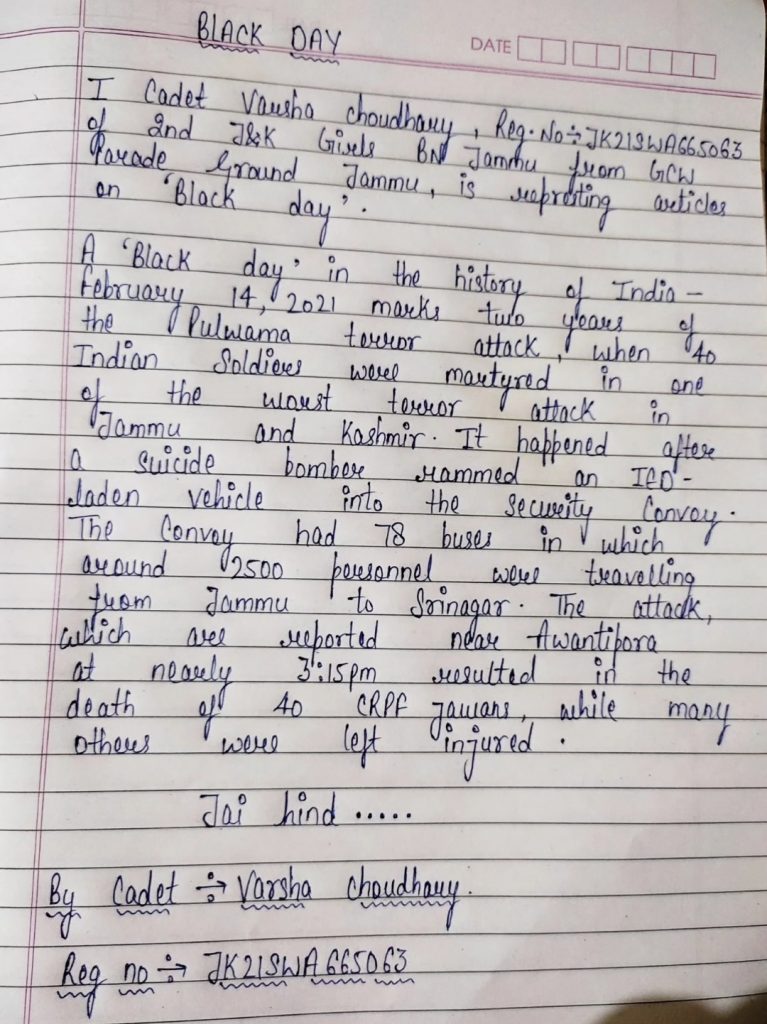 BLACK DAY
DATE
I Cadet Varsha choudhary, Reg. No÷JK21SWA665063
of 2nd J&K Girls BN Jammu from GCW
Parade Ground Jammu, is repreting articles
on 'Black day'.
A 'Black day' in the history of India -
February 14, 2021 marks two years of
the Pulwama terror attack, when 40
Indian Soldiers were martyred in one
of the worst terror attack in
Jammu and Kashmir. It happened after
a suicide bomber rammed an IED-
laden vehicle into the security Convoy.
The Convoy had 78 buses in which
around 2500 personnel were travelling
from Jammu to Srinagar. The attack,
which are reported near Awantipora
at nearly 3:15pm resulted in the
death of 40 CRPF jawans, while many
others were left injured.
Jai hind .....
By Cadet ÷ Varsha choudhary.
Reg no ÷ JK21SWA665063